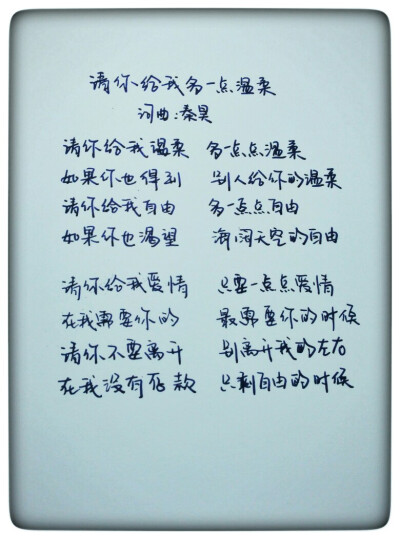 请你给我多一点温柔
词曲:秦昊
请你给我温柔 多一点点温柔
如果你也得到 别人给你的温柔
请你给我自由 多一点点自由
如果你也渴望 海阔天空的自由
请你给我爱情 只要一点点爱情
在我需要你的 最需要你的时候
请你不要离开 别离开我的左右
在我没有存款 只剩自由的时候